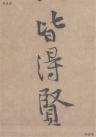 皆得賢